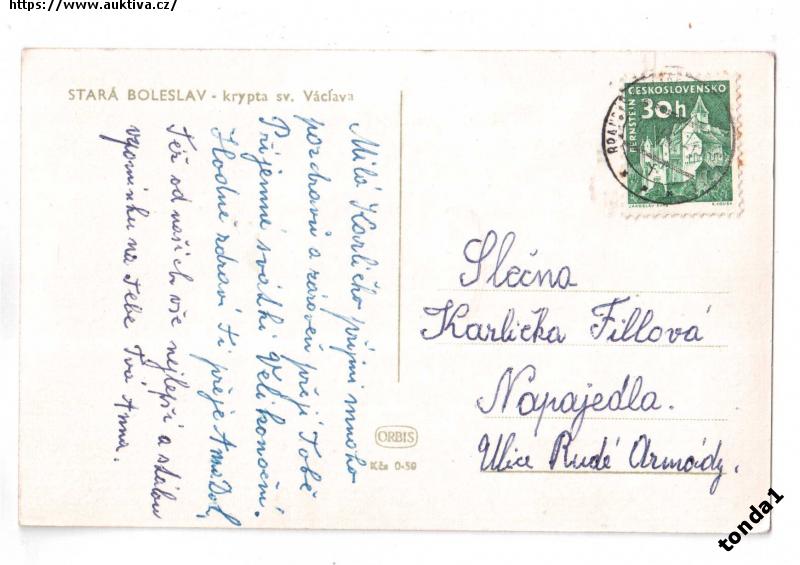 https://www.auktiva.cz/
STARÁ BOLESLAV - krypta sv. Václava
Milá Karličko přijmi mnoho
pozdravů a zároveň přeji Tobě
Příjemné svátki Velikonoční.
Hodně zdraví Ti přeje Ama Dol,
Též od našich vše nejlepší a stálou
vzpomínku na Tebe Tvá Anna.
ČESKOSLOVENSKO
30h
PERNŠTEJN
ORBIS
Kčs 0·50
Slečna
Karlička Fillová
Napajedla.
Ulice Rudé Armády.
tonda1